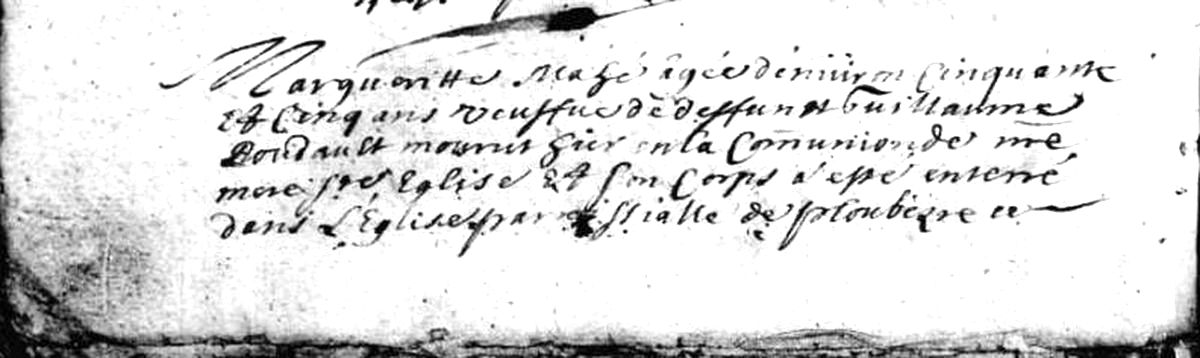 Margueritte Mahé âgée d'enuiron Cinquante
Et Cinq ans veuffue dé deffunct Guillaume
Roudault mourut hier en la Com̃union de nr̃e
mere ste Eglise Et son Corps a esté enterré
dans L'Eglise parroissialle de ploubezre ce